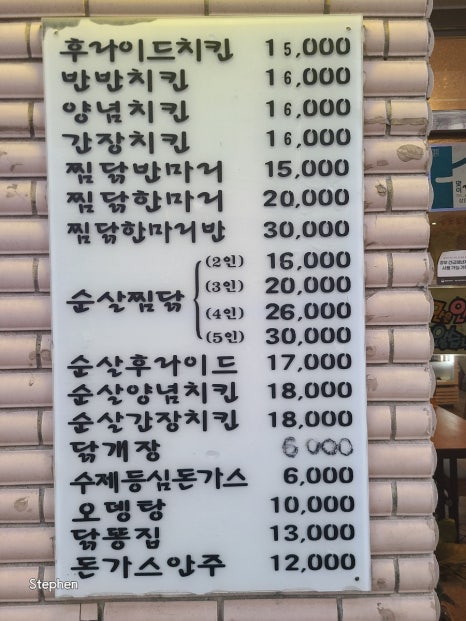 후라이드치킨 15,000
반반치킨 16,000
양념치킨 16,000
간장치킨 16,000
찜닭반마리 15,000
찜닭한마리 20,000
찜닭한마리반 30,000
순살찜닭 (2인) 16,000
(3인) 20,000
(4인) 26,000
(5인) 30,000
순살후라이드 17,000
순살양념치킨 18,000
순살간장치킨 18,000
닭개장 6000
수제등심돈가스 6,000
오뎅탕 10,000
닭똥집 13,000
돈가스안주 12,000
Stephen